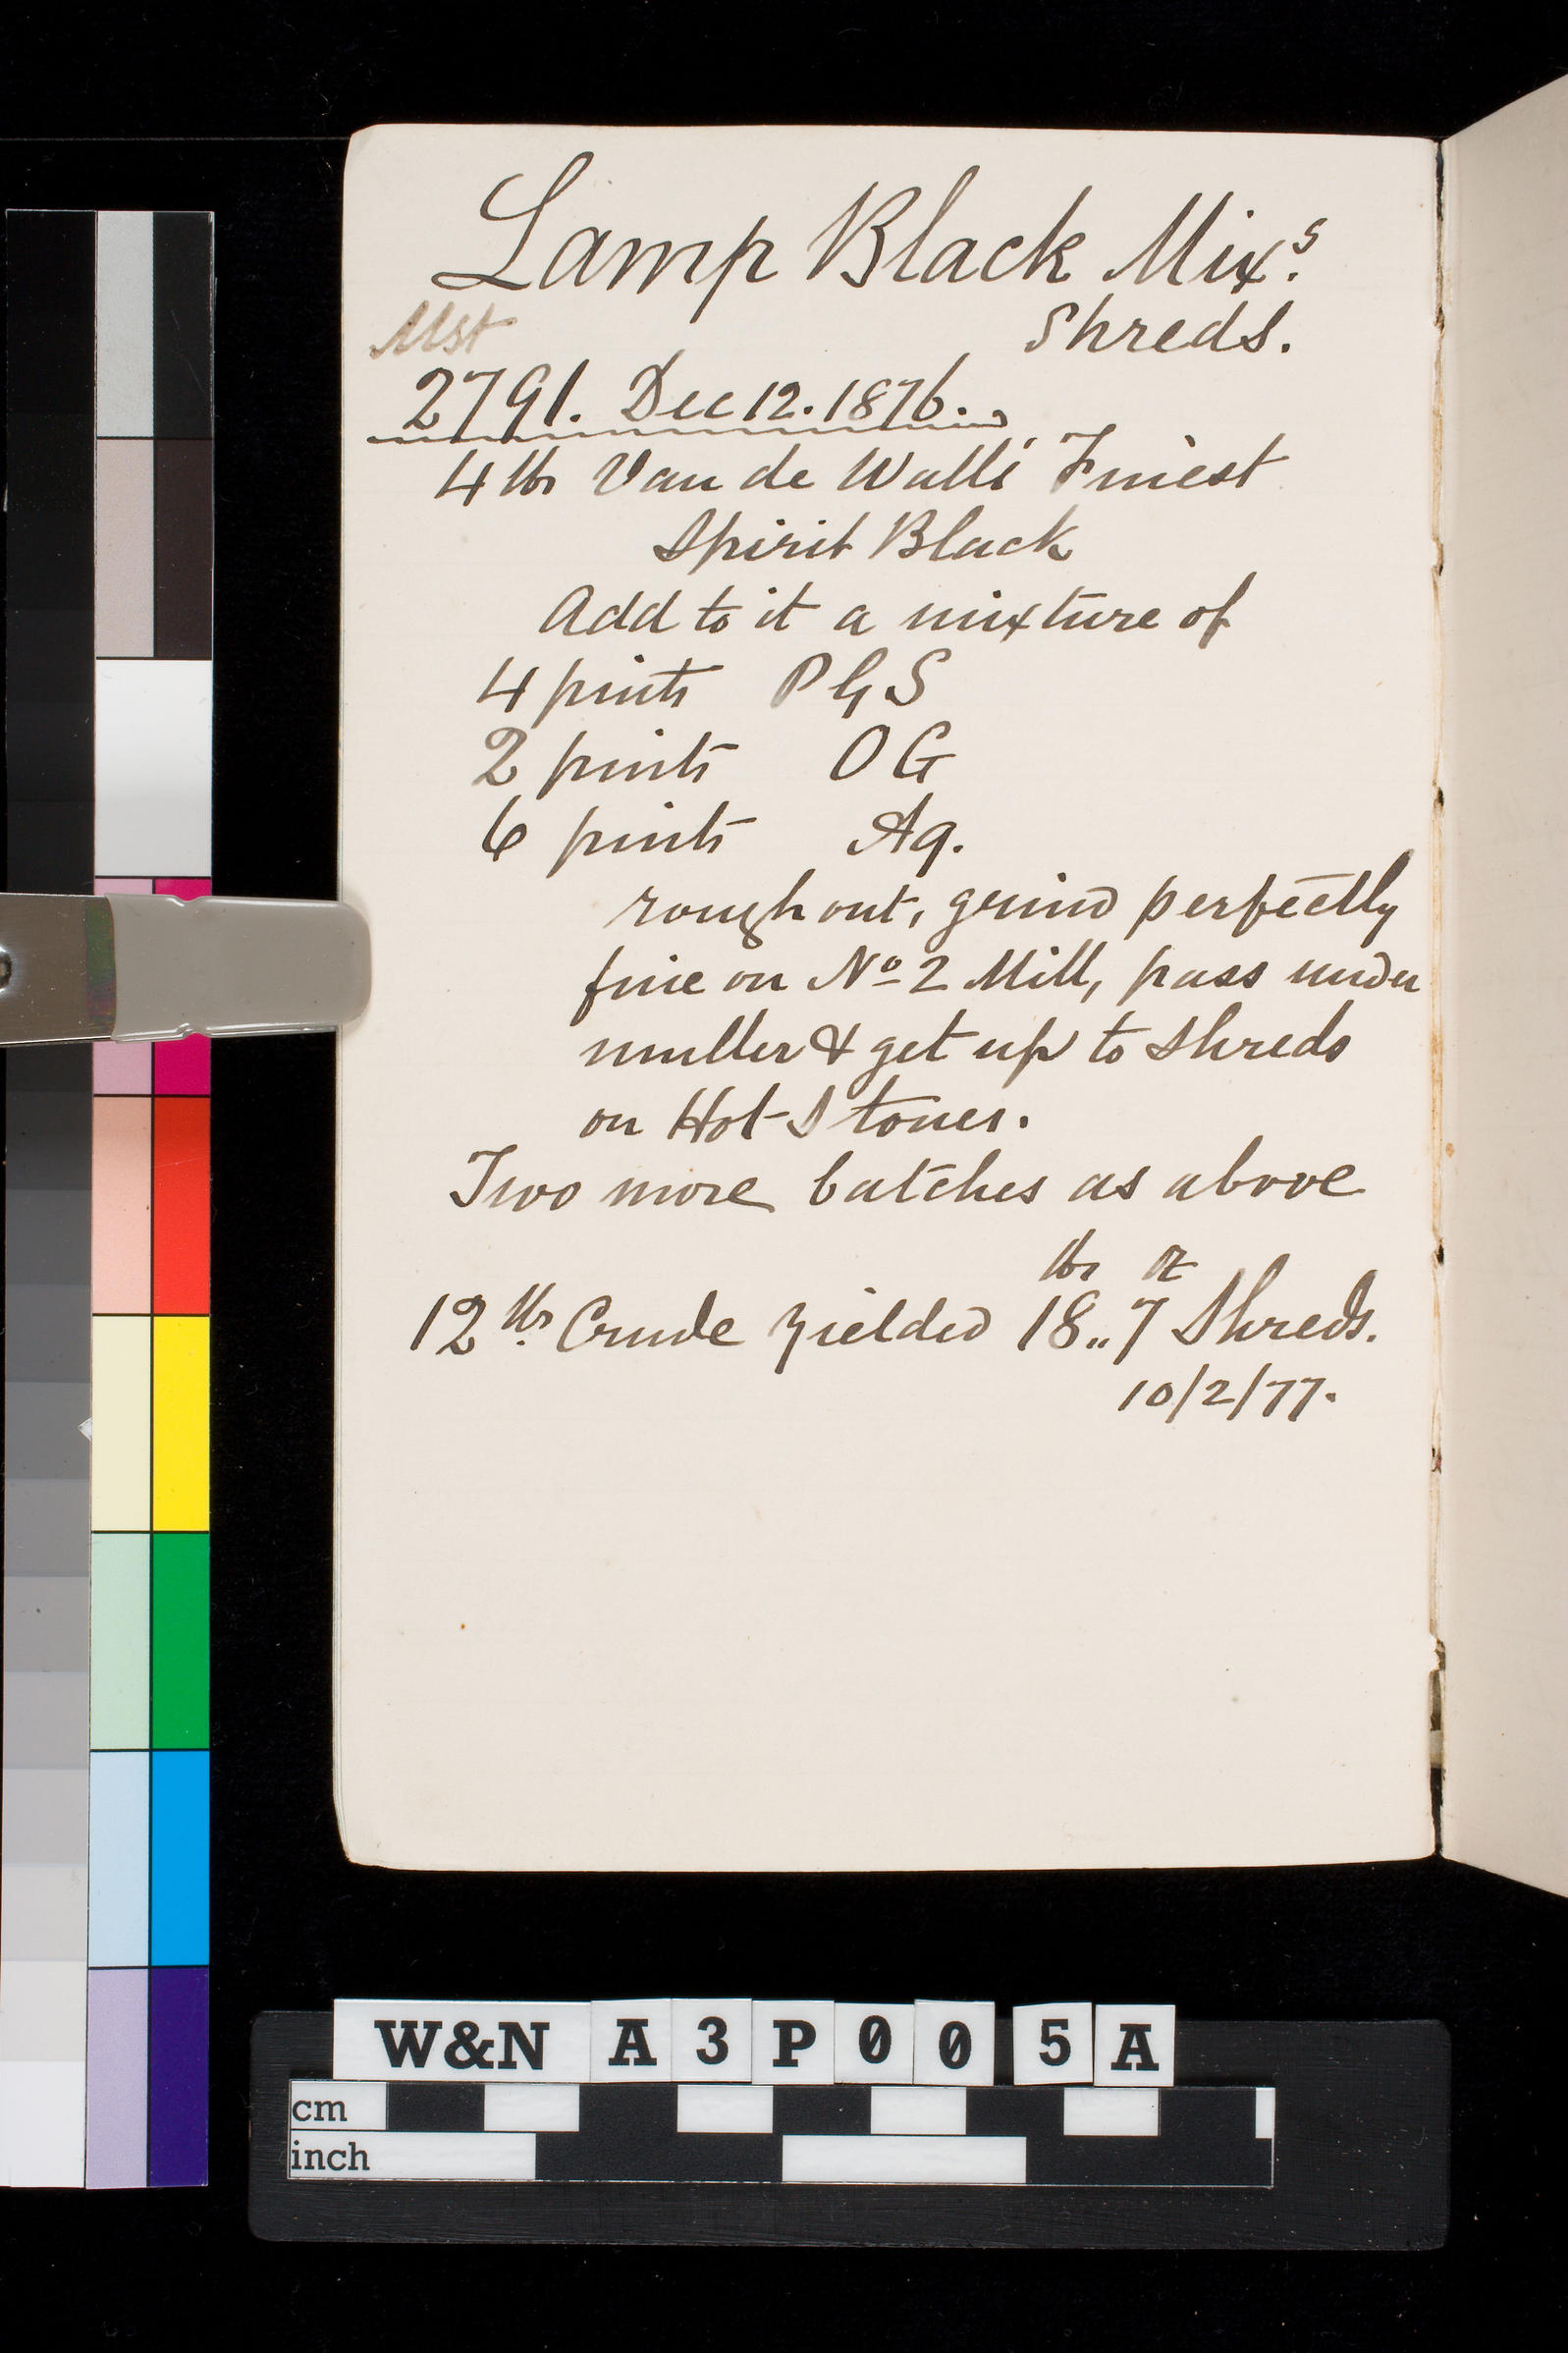 Lamp Black Mixs.
Mst
Shreds.
2791. Dec 12. 1876.
4 lbs Van de Walls' Finest
Spirit Black
Add to it a mixture of
4 pints PGS
2 pints OG
6 pints Aq.
rough out, grind perfectly
fine on No 2 Mill, pass under
muller & get up to shreds
on Hot Stones.
Two more batches as above
lbs oz
12 lbs. Crude yielded 18..7 Shreds.
10/2/77.
W&N A3P005A
cm
inch